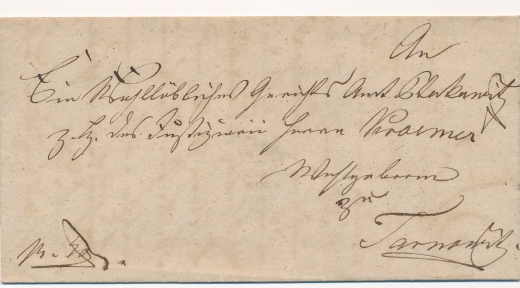 An
Ein Wohllöbliches Gerichts Amt
z. H. des Justiziarii Herrn Kroemer
Wohlgeboren
zu
Tarnowitz.